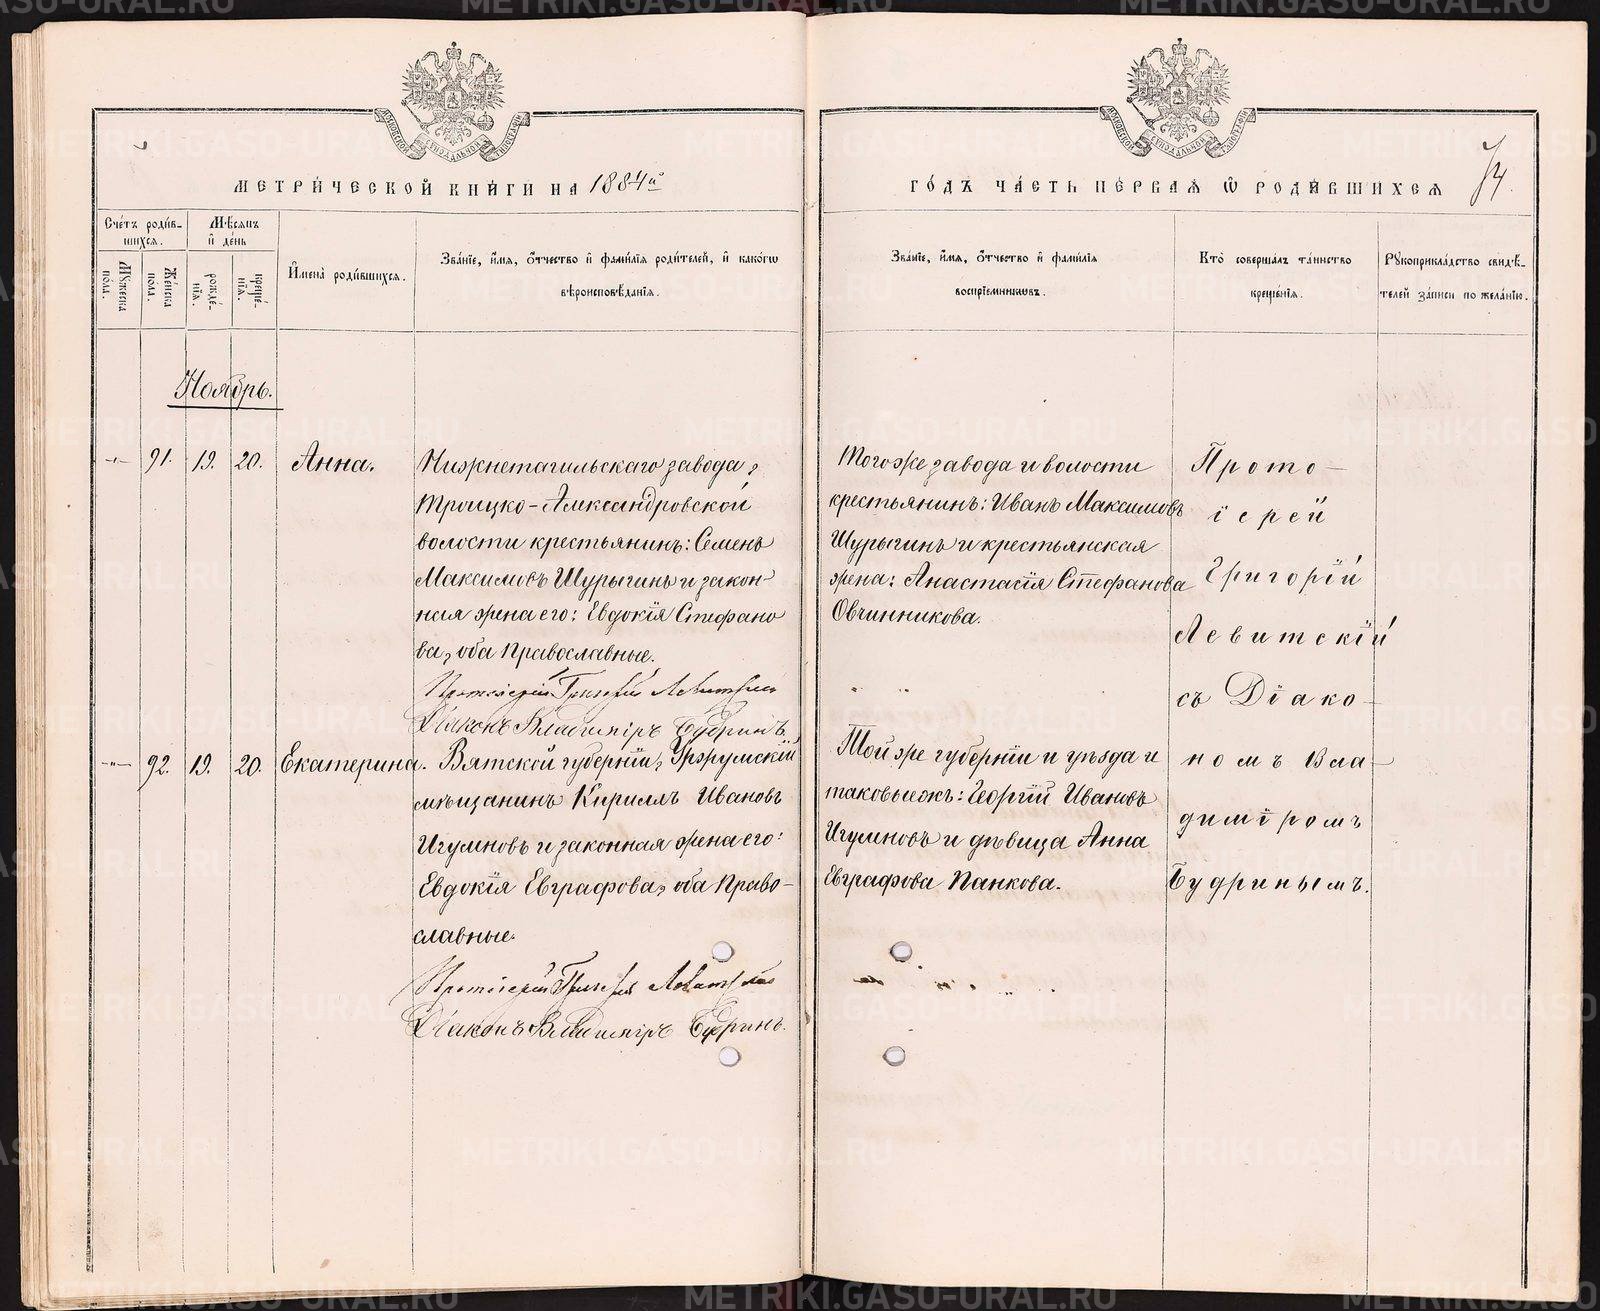 МЕТРИЧЕСКОЙ КНИГИ НА 1884й
Счетъ родив-
шихся.
Мѣсяцъ
и день
Мужеска
пола.
Женска
пола.
рожде-
нія.
креще-
нія.
Имена родившихся.
Званіе, имя, отчество и фамилія родителей, и какого
вѣроисповѣданія.
Ноябрь.
-"- 91. 19. 20. Анна.
Нижнетагильскаго завода,
Троицко-Александровской
волости крестьянинъ: Семенъ
Максимовъ Шурыгинъ и закон-
ная жена его: Евдокія Стефано
ва, оба Православные.
Протоіерей Григорій Левитскій
Діаконъ Владиміръ Будринъ
-"- 92. 19. 20. Екатерина.
Вятской губерніи, Уржумскій
мѣщанинъ Кириллъ Ивановъ
Игумновъ и законная жена его:
Евдокія Евграфова, оба Право-
славные.
Протоіерей Григорій Левитскій
Діаконъ Владиміръ Будринъ.
ГОДЪ ЧАСТЬ ПЕРВАЯ Ѿ РОДИВШИХСЯ
74.
Званіе, имя, отчество и фамилія
воспріемниковъ.
Кто совершалъ таинство
крещенія.
Рукоприкладство свидѣ-
телей записи по желанію.
Тогоже завода и волости
крестьянинъ: Иванъ Максимовъ
Шурыгинъ и крестьянская
жена: Анастасія Стефанова
Овчинникова.
Той же губерніи и уѣзда и
таковыеже: Георгій Ивановъ
Игумновъ и дѣвица Анна
Евграфова Панкова.
Прото-
іерей
Григорій
Левитскій
съ Діако-
номъ Вла-
диміромъ
Будринымъ.
METRIKI.GASO-URAL.RU